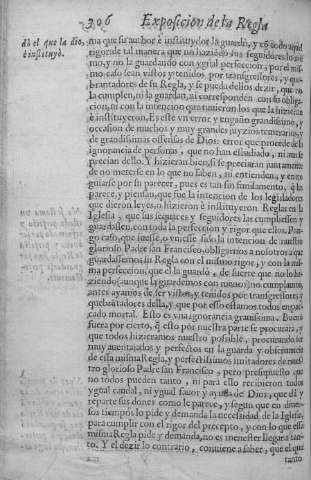 306 Exposicion de la Regla
dò el que la dio, è instituyò.
ma que su author è instituydor la guardò, y
rigor de tal manera que no haziẽdo sus seguidores lo mes
mo, y no la guardando con ygual perfeccion, por el mis-
mo caso sean vistos y tenidos por transgressores, y que-
brantadores de su Regla, y se pueda dellos dezir, que no
la cumplen, ni la guardan, ni corresponden con su obliga-
cion, ni con la intencion que tuuieron los que la hizieron
è instituyeron. Es este vn error, y engaño grandissimo, y
occasion de muchos y muy grandes juyzios temerarios, y
de grandissimas offensas de Dios: error que procede de la
ignorancia de personas, que no han estudiado, ni aun se
precian dello. Y hizieran bien, si se preciaran juntamente
de no meterse en lo que no saben, ni entienden, y en no
guiarse por su parecer, pues es tan sin fundamento, q̃ les
parece, y piensan, que fue la intencion de los legisladores
que dieron leyes, ò hizieron è instituyeron Reglas en la
Iglesia, que sus sequaces y seguidores las cumpliessen y
guardassen con toda la perfeccion y rigor que ellos. Pon-
gao caso, que fuesse, ò vuiesse sido la intencion de nuestro
glorioso Padre san Francisco, obligarnos a nosotros a que
guardassemos su Regla con el mismo rigor, y con la mis-
ma perfeccion, que el la guardò, de suerte que no lo ha-
ziendo (aunque la guardemos con menos) no cumplamos,
antes ayamos de ser vistos, y tenidos por transgressores y
quebrãtadores della, y que por esso estamos todos en pe-
cado mortal. Esto es vna ignorancia grauissima. Bueno
fuera por cierto, q̃ esto por nuestra parte se procurara, y
que todos hizieramos nuestro possible, procurando ser
muy auentajados y perfectos en la guarda y obseruancia
de essa misma Regla, y perfectissimos imitadores de nues-
tro glorioso Padre san Francisco, pero presupuesto que
no todos pueden tanto, ni para ello recibieron todos
ygual caudal, ni ygual fauor y ayuda de Dios, que dà y
reparte sus dones como le parece, y segun que en diuer-
sos tiempos lo pide y demanda la necessidad de la Iglesia,
para cumplir con el rigor del precepto, y con lo que essa
misma Regla pide y demanda, no es menester llegar a tan-
to. Y el dezir lo contrario, conuiene a saber, que el que
tanto